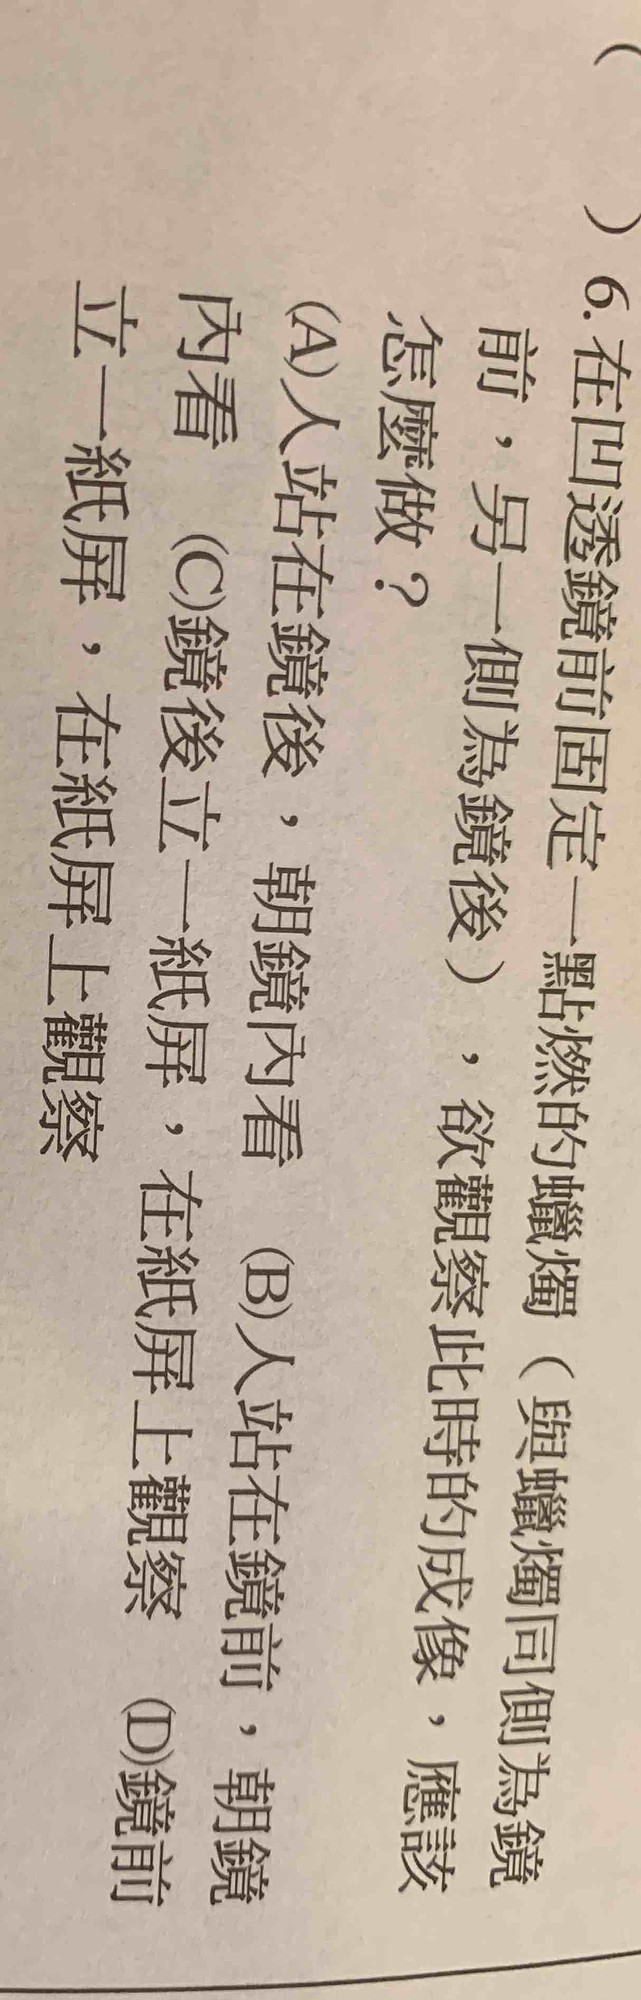 (　　) 6. 在凹透鏡前固定一點燃的蠟燭（與蠟燭同側為鏡
前，另一側為鏡後），欲觀察此時的成像，應該
怎麼做？
(A)人站在鏡後，朝鏡內看　(B)人站在鏡前，朝鏡
內看　(C)鏡後立一紙屏，在紙屏上觀察　(D)鏡前
立一紙屏，在紙屏上觀察